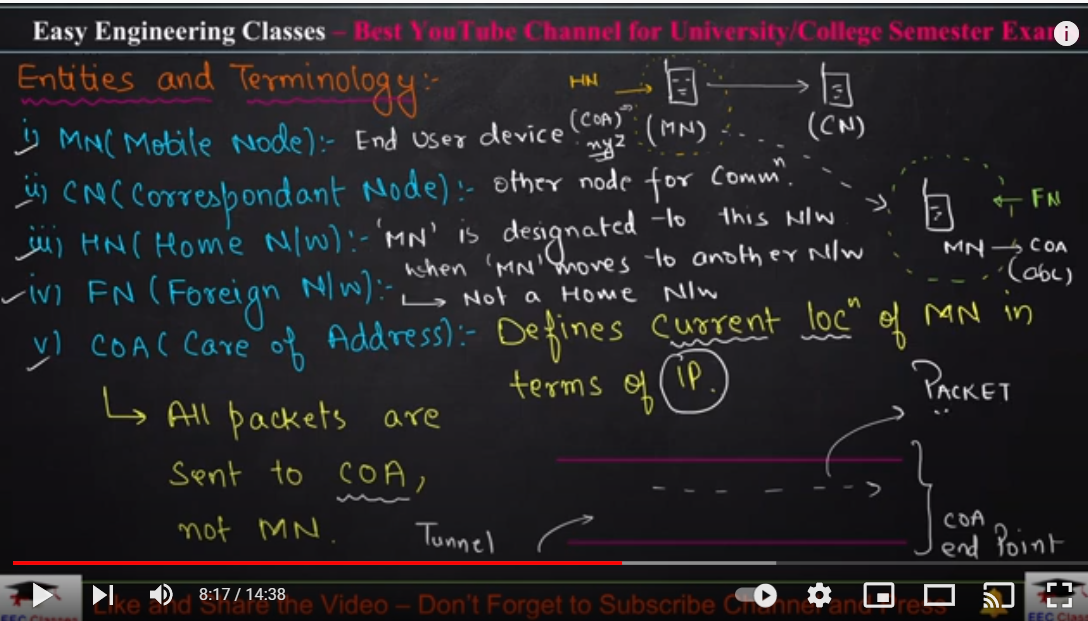 Easy Engineering Classes – Best YouTube Channel for University/College Semester Exam
Entities and Terminology:-
HN
(MN)
(CN)
i) MN(Mobile Node):- End User device
(COA)
xyz
ii) CN(Correspondant Node):- other node for Commⁿ.
FN
MN → COA
(abc)
iii) HN( Home N/w):- 'MN' is designated to this N/w
when 'MN' moves to another N/w
iv) FN (Foreign N/w):- ↳ Not a Home N/w
v) COA( Care of Address):- Defines current locⁿ of MN in
terms of IP.
↳ All packets are
sent to COA,
not MN.
PACKET
Tunnel
COA
end Point
8:17 / 14:38
Like and Share the Video – Don't Forget to Subscribe Channel and Press
EEC Classes